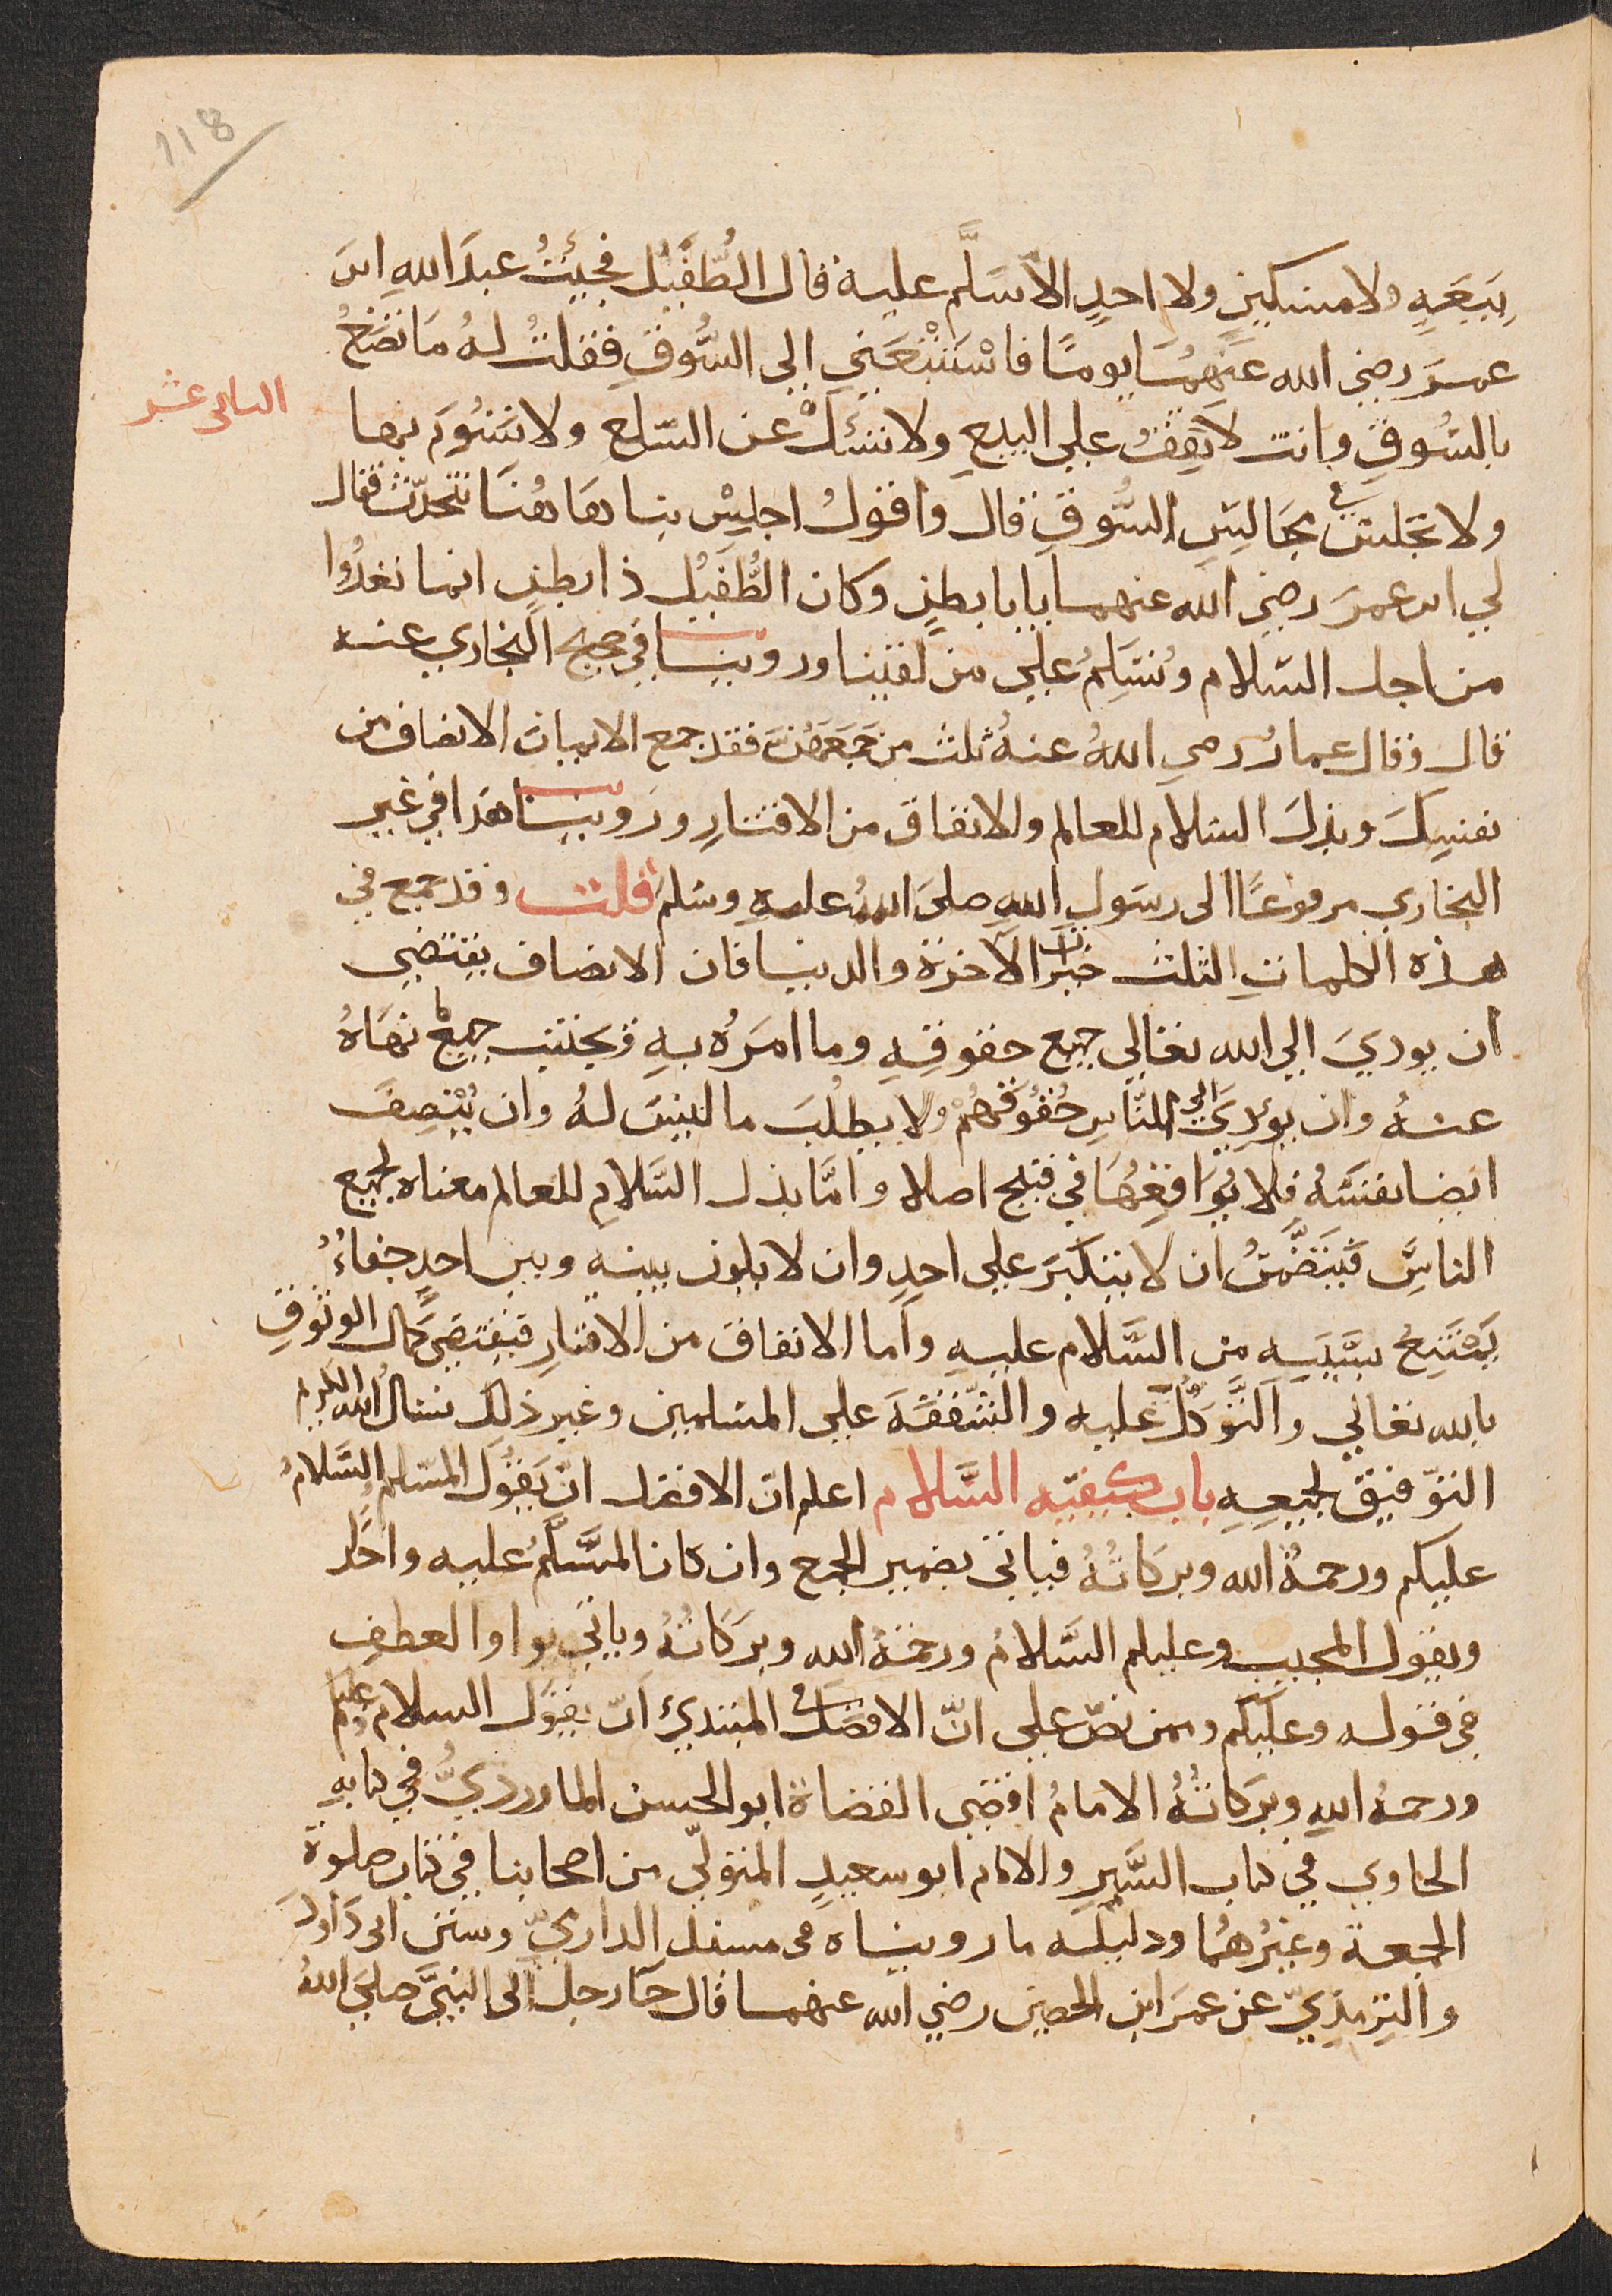 118
بيعةٍ ولا مسكينٍ ولا احدٍ الا سَلَّم عليه قال الطُّفَيْل فجيئتُ عبدَ اللهِ ابن
عمرَ رضي الله عنهُمَا يومًا فاسْتَتْبَعَنِي الي السُّوقِ فقلتُ لهُ مَا تصْنَعُ
الثاني عشر
بالسُّوقِ وانت لا تَقِفُ علي البيعِ ولا تسْئَلُ عن السّلع ولا تسُوم بها
ولا تجلس في مجَالِسِ السُّوقِ قال واقولُ اجلِسْ بنا هَاهُنَا نتحدّث فقال
لي ابن عمرَ رضي الله عنهما يابا بطنٍ وكان الطُّفَيْل ذا بطنٍ انما نغدُوا
من اجل السّلام ونُسَلِّمُ علي من لقينا وروينا في صحيح البخاري عنه
قال وقال عمار رضي اللهُ عنهُ ثلث من جَمَعَهُنَّ فقد جمع الايمان الانصاف من
نفسِكَ وبذلَ السلام للعالم والانفاق من الاقتارِ ورَوينا هذا في غير
البخاري مرفوعًا الى رسَول اللهِ صلىَ اللهُ عليه وسَلم قلت وقد جمع في
هذه الكلماتِ الثلث خيرات الآخرة والدنيا فان الانصاف يقتضي
ان يوديَ الي الله تعالي جميع حقوقِهِ وما امَرَهُ بهِ ويجتنب جميع ما نهَاهُ
عنهُ وان يؤديَ الي النّاسِ حُقُوقهُمْ ولا يطلُبَ ما ليسَ لهُ وان يُنْصِفَ
ايضا نفسَهُ فلا يُوَافِعُهَا في قبيح اصلا وامَّا بذل السَّلامِ للعالم معناه لجميع
الناسِ فيتَضَّمَنُ ان لا يتكبَرَ علي احدٍ وان لا يكون بينهِ وبين احدٍ جفاءُ
يَمْتَنِعُ بسَّبَبِه من السَّلام عليهِ وأما الانفاقَ من الاقتارِ فيقتضي كمال الوثوقِ
بالله تعالي والتَّوكُّل عليه والشّفقةَ علي المسلمين وغير ذلك نسالُ الله الكريم
التوّفيق لجميعِهِ باب كيفيّه السَّلام اعلم انّ الافضل انْ يَقُولَ المسَلم السَّلامُ
عليكم ورحمةُ الله وبركاتُهُ فياتى بضمير الجمع وان كان المسَّلَّمُ عليه واحدًا
ويقول المجيب وعليكم السّلامُ ورحمةُ الله وبرَكَاتُهُ وياتي بواو العطفِ
في قوله وعليكم وممن نصّ علي انّ الافضل في المبتديْ انّ يقوَل السلام عليكم
ورحمهُ اللهِ وبرَكاتُهُ الامامُ اقضي القضاة ابو الحسن الماورديُّ في كتابهِ
الحاوي في كتاب السِّيرِ والامام ابو سعيدٍ المتولّي من اصحابنا في كتاب صلوة
الجمعة وغيرُهُمَا ودليله ما رويناه في مسند الدارميّ وسنن ابي دَاودَ
والتِرمذِيّ عن عمرَ ابن الحصين رضي الله عنهما قال جآ رجل الى النبيَّ صلىَ اللهُ